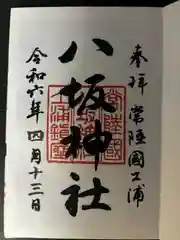 奉拝 常陸國土浦
八坂神社
令和六年四月十三日